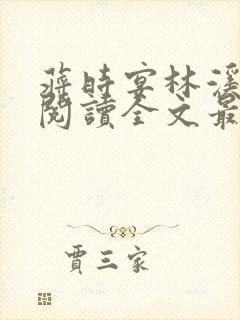 蔣時宴林溪
閱讀全文最
賈三家